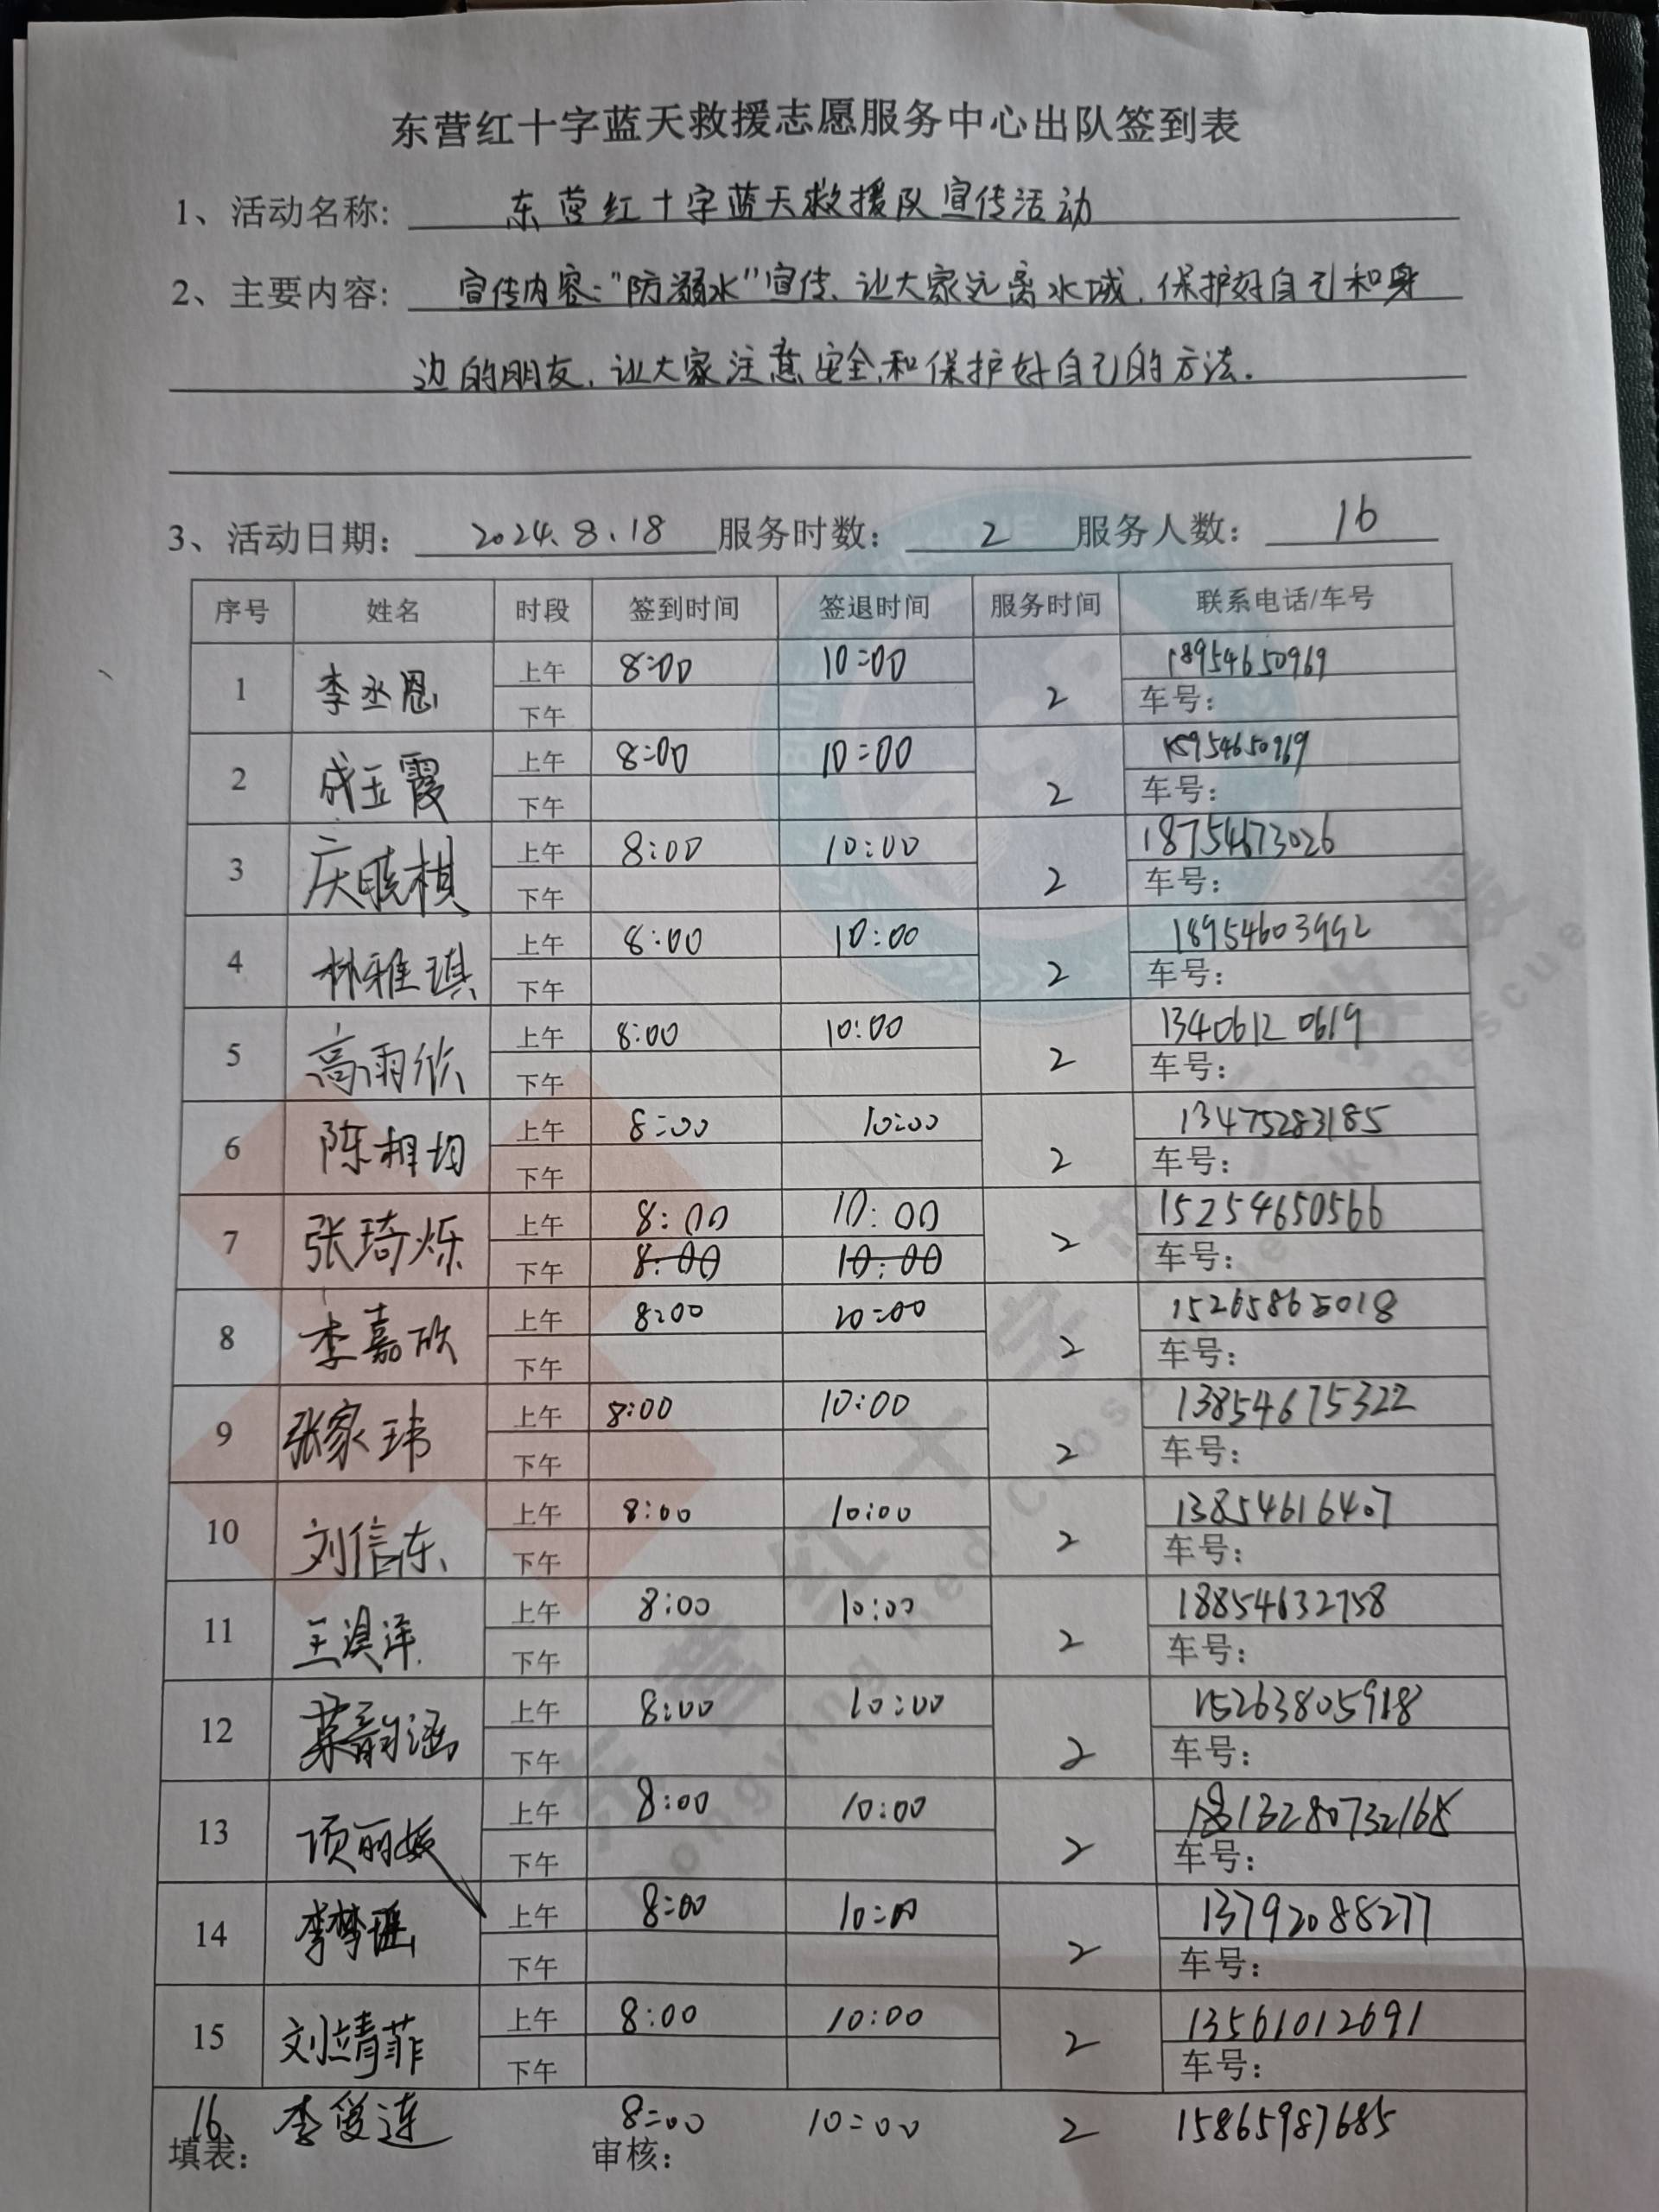 东营红十字蓝天救援志愿服务中心出队签到表
1、活动名称: 东营红十字蓝天救援队宣传活动
2、主要内容: 宣传内容:"防溺水"宣传、让大家远离水域,保护好自己和身
边的朋友,让大家注意安全和保护好自己的方法.
3、活动日期: 2024.8.18 服务时数: 2 服务人数: 16
序号 姓名 时段 签到时间 签退时间 服务时间 联系电话/车号
1 李丞恩 上午 8:00 10:00 2 18954650969
下午 车号:
2 成玉霞 上午 8:00 10:00 2 18954650969
下午 车号:
3 庆晓棋 上午 8:00 10:00 2 18754673026
下午 车号:
4 林雅琪 上午 8:00 10:00 2 18954603992
下午 车号:
5 高雨欣 上午 8:00 10:00 2 13406120619
下午 车号:
6 陈相均 上午 8:00 10:00 2 13475283185
下午 车号:
7 张琦烁 上午 8:00 10:00 2 15254650566
下午 8:00 10:00 车号:
8 李嘉欣 上午 8:00 20:00 2 15265865018
下午 车号:
9 张家玮 上午 8:00 10:00 2 13854675322
下午 车号:
10 刘信东 上午 8:00 10:00 2 13854616407
下午 车号:
11 王淏洋 上午 8:00 10:00 2 18854632758
下午 车号:
12 韵涵 上午 8:00 10:00 2 15263805918
下午 车号:
13 项丽媛 上午 8:00 10:00 2
下午 车号:
14 李梦瑶 上午 8:00 10:00 2 13792088277
下午 车号:
15 刘靖菲 上午 8:00 10:00 2 13561012691
下午 车号:
16 李俊连 8:00 10:00 2 15865987685
填表: 审核:
东营红十字蓝天救援
Dongying Red Cross Blue Sky Rescue